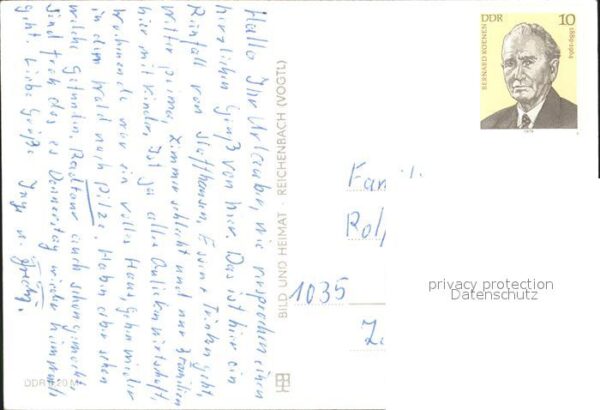 Hallo Ihr Urlauber, wie versprochen einen
herzlichen Gruß von hier. Das ist hier ein
Reinfall von Essen + Trinken geht,
Wetter prima, Zimmer schlecht und nur Familien
hier mit Kinder. Ist ja alles
Wochenende war ein volles Haus, gehen wieder
in den Wald nach Pilze. Haben aber schon
welche gefunden. Radtour auch schon gemacht.
Sind froh das es Donnerstag wieder heimwärts
geht. Liebe Grüße Inge u.
DDR 0,20 M
BILD UND HEIMAT · REICHENBACH (VOGTL)
DDR 10
BERNARD KOENEN
1889-1964
Fam
Rol
1035
Z
privacy protection
Datenschutz